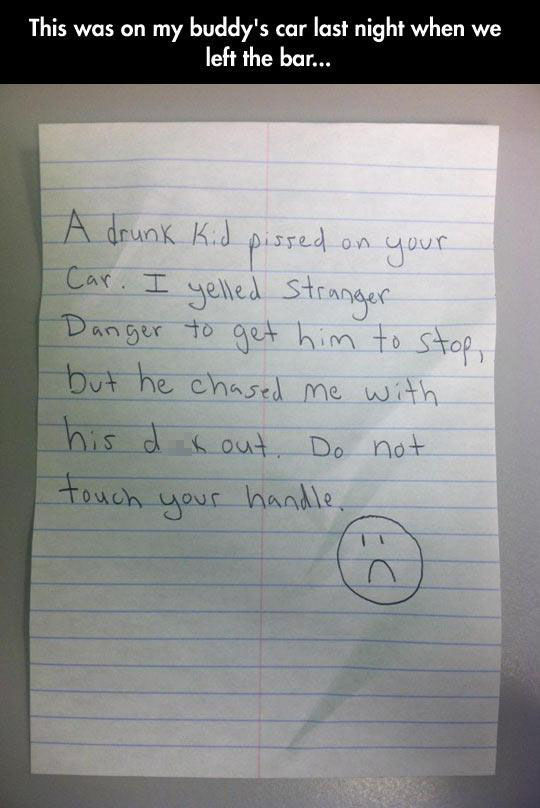 This was on my buddy's car last night when we
left the bar...
A drunk kid pissed on your
Car. I yelled Stranger
Danger to get him to stop,
but he chased me with
his d k out. Do not
touch your handle.